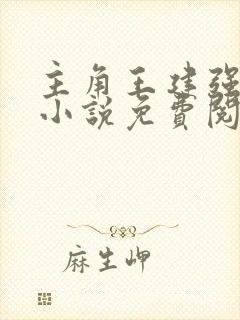 主角王建强
小說免費閱
麻生岬